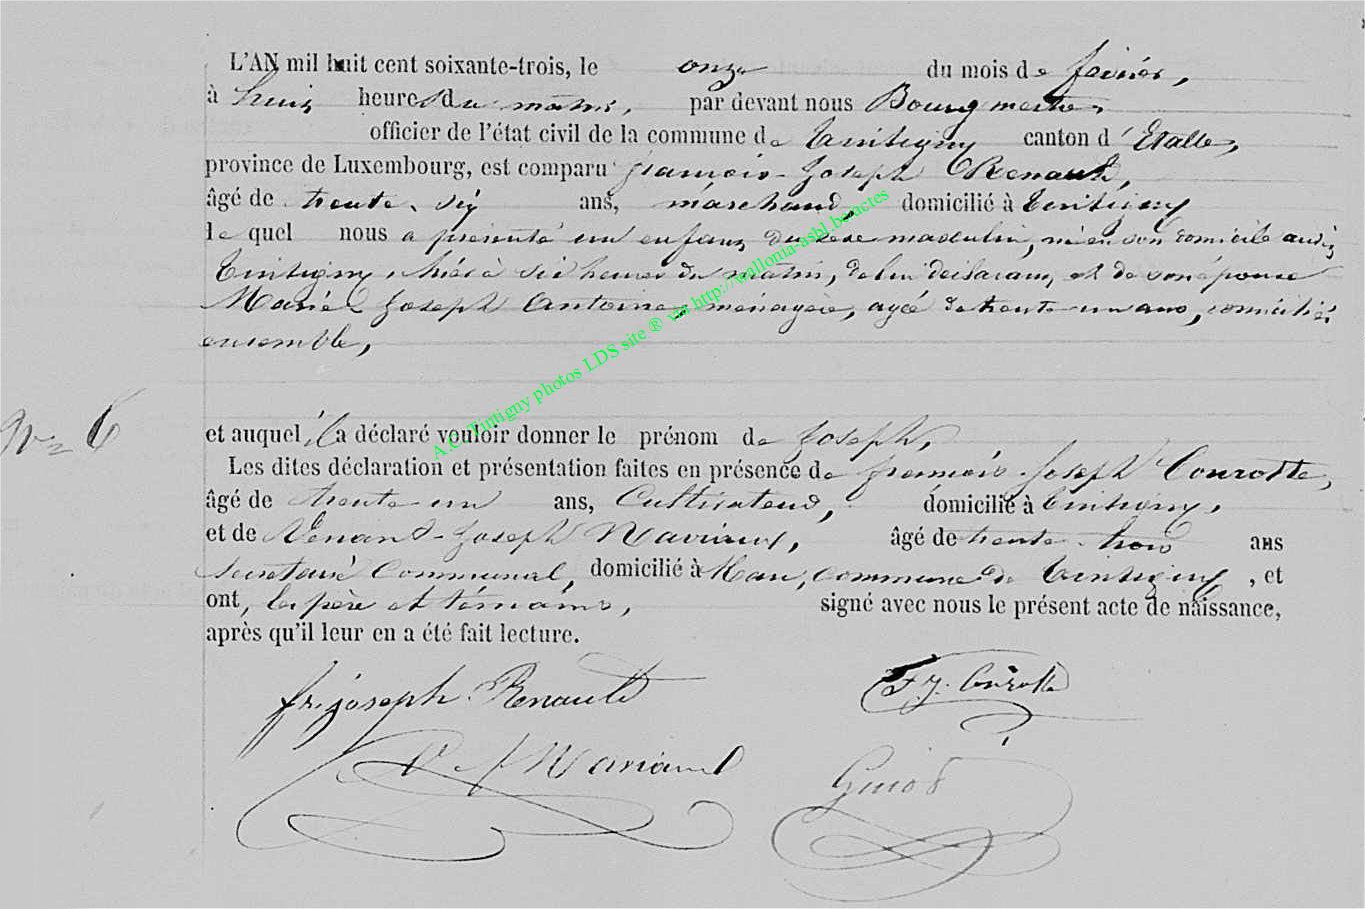 L'AN mil huit cent soixante-trois, le onze du mois de février,
à huit heures du matin, par devant nous Bourgmestre,
officier de l'état civil de la commune de Tintigny canton d'Etalle,
province de Luxembourg, est comparu françois-Joseph Renault,
âgé de trente-six ans, marchand, domicilié à Tintigny
lequel nous a présenté un enfant du sexe masculin, né en son domicile audit
Tintigny, hier à six heures du matin, de lui déclarant, et de son épouse
Marie Joseph Antoine, ménagère, agée de trente-un ans, domiciliés
ensemble,
N° 6
et auquel il a déclaré vouloir donner le prénom de Joseph,
Les dites déclaration et présentation faites en présence de françois-Joseph Conrotte,
âgé de trente-un ans, Cultivateur, domicilié à Tintigny,
et de Venant-Joseph ans
âgé de trente-trois
secrétaire Communal, domicilié à Han, commune de Tintigny, et
ont, les père et témoins, signé avec nous le présent acte de naissance,
après qu'il leur en a été fait lecture.
fr. joseph Renault
F. J. Conrotte
V J
Guiot
A.C. Tintigny photos LDS site ® via http://wallonia-asbl.be/actes